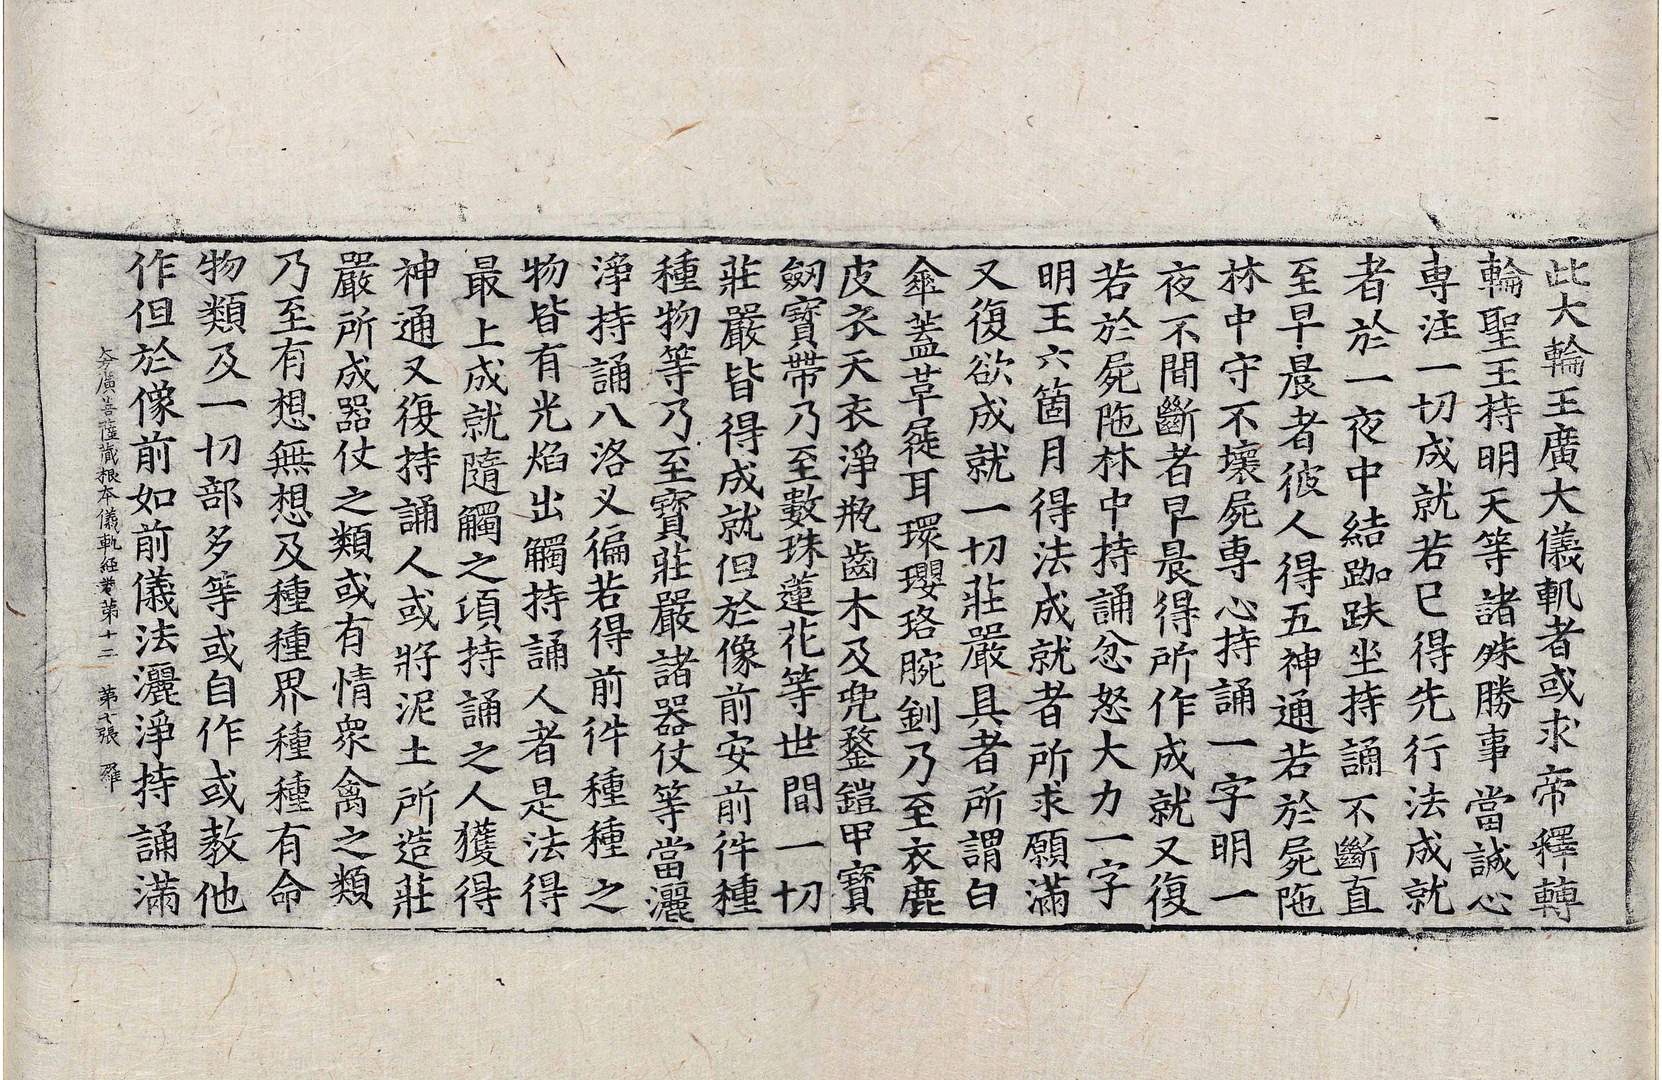 此大輪王廣大儀軌者或求帝釋轉
輪聖王持明天等諸殊勝事當誠心
專注一切成就若已得先行法成就
者於一夜中結跏趺坐持誦不斷直
至早晨者彼人得五神通若於屍陁
林中守不壞屍專心持誦一字明一
夜不間斷者早晨得所作成就又復
若於屍陁林中持誦忿怒大力一字
明王六箇月得法成就者所求願滿
又復欲成就一切莊嚴具者所謂白
傘蓋草屣耳環瓔珞腕釧乃至衣鹿
皮衣天衣淨瓶齒木及兜鍪鎧甲寶
劒寶帶乃至數珠蓮花等世間一切
莊嚴皆得成就但於像前安前件種
種物等乃至寶莊嚴諸器仗等當灑
淨持誦八洛叉徧若得前件種種之
物皆有光焰出觸持誦人者是法得
最上成就隨觸之項持誦之人獲得
神通又復持誦人或將泥土所造莊
嚴所成器仗之類或有情衆禽之類
乃至有想無想及種種界種種有命
物類及一切部多等或自作或教他
作但於像前如前儀法灑淨持誦滿
廣菩薩藏根本儀軌經卷第十二 第七張 羅